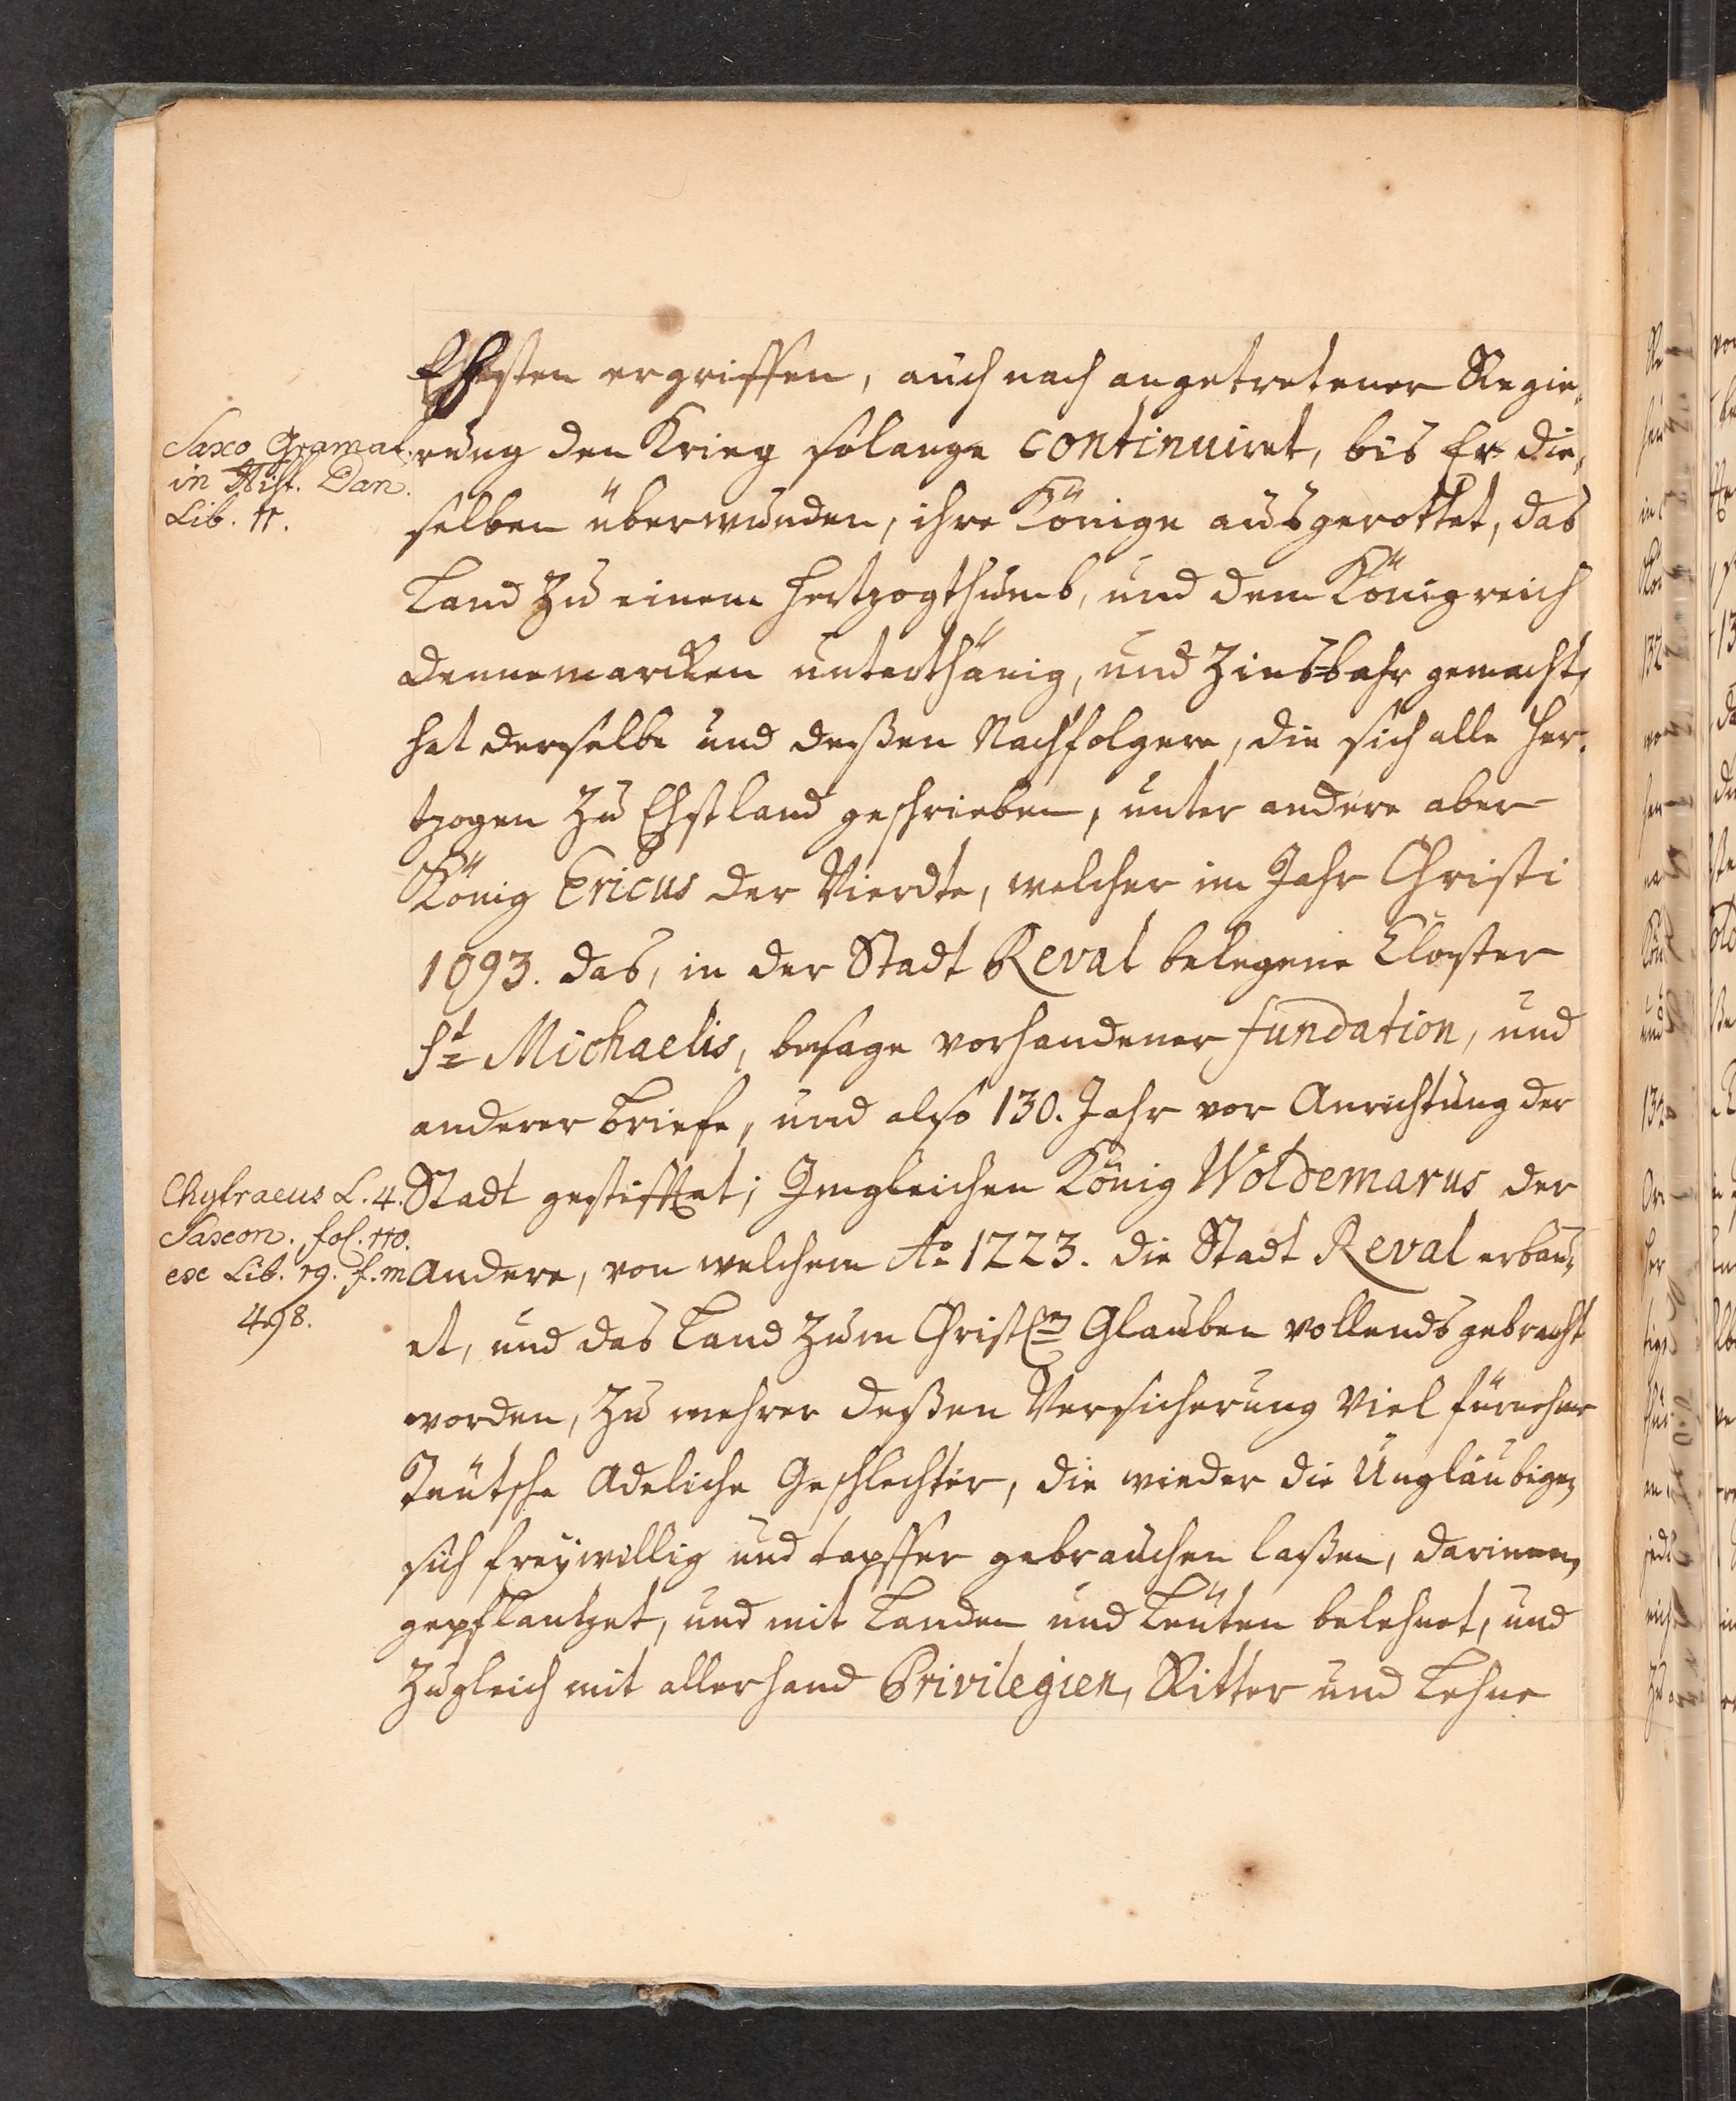 Ehesten ergriffen, auch nach angetretener Regie,
Saxo Gramat.
in Hist. Dan.
Lib. 11.
rung den Krieg solange continuiret, bis Er die,
selben überwunden, ihre Könige ausgerottet, das
Land zu einem Hertzogthumb, und dem Königreich
Dennemarcken unterthänig, und Zinsbahr gemacht,
hat derselbe und deßen Nachfolgere, die sich alle Her,
tzogen zu Ehstland geschrieben, unter andere aber
König Ericus der Vierdte, welcher im Jahr Christi
1093. das, in der Stadt Reval belegene Closter
St Michaelis, besage vorhandener fundation, und
anderer Briefe, und also 130. Jahr vor Anrichtung der
Chytraeus L. 4.
Saxon. fol. 110.
ex Lib. 19. f. m
498.
Stadt gestifftet; Imgleichen König Woldemarus der
Andere, von welchem Ao 1223. die Stadt Reval erbau,
et, und das Land zum Christl. Glauben vollends gebracht
worden, zu mehrer deßen Versicherung viel fürnehme
Teütsche Adeliche Geschlechter, die wieder die Ungläubigen
sich freÿwillig und tapffer gebrauchen laßen, darinnen
gepflantzet, und mit Landen und Leüten belehnet, und
zugleich mit allerhand Privilegien, Ritter und Lehne